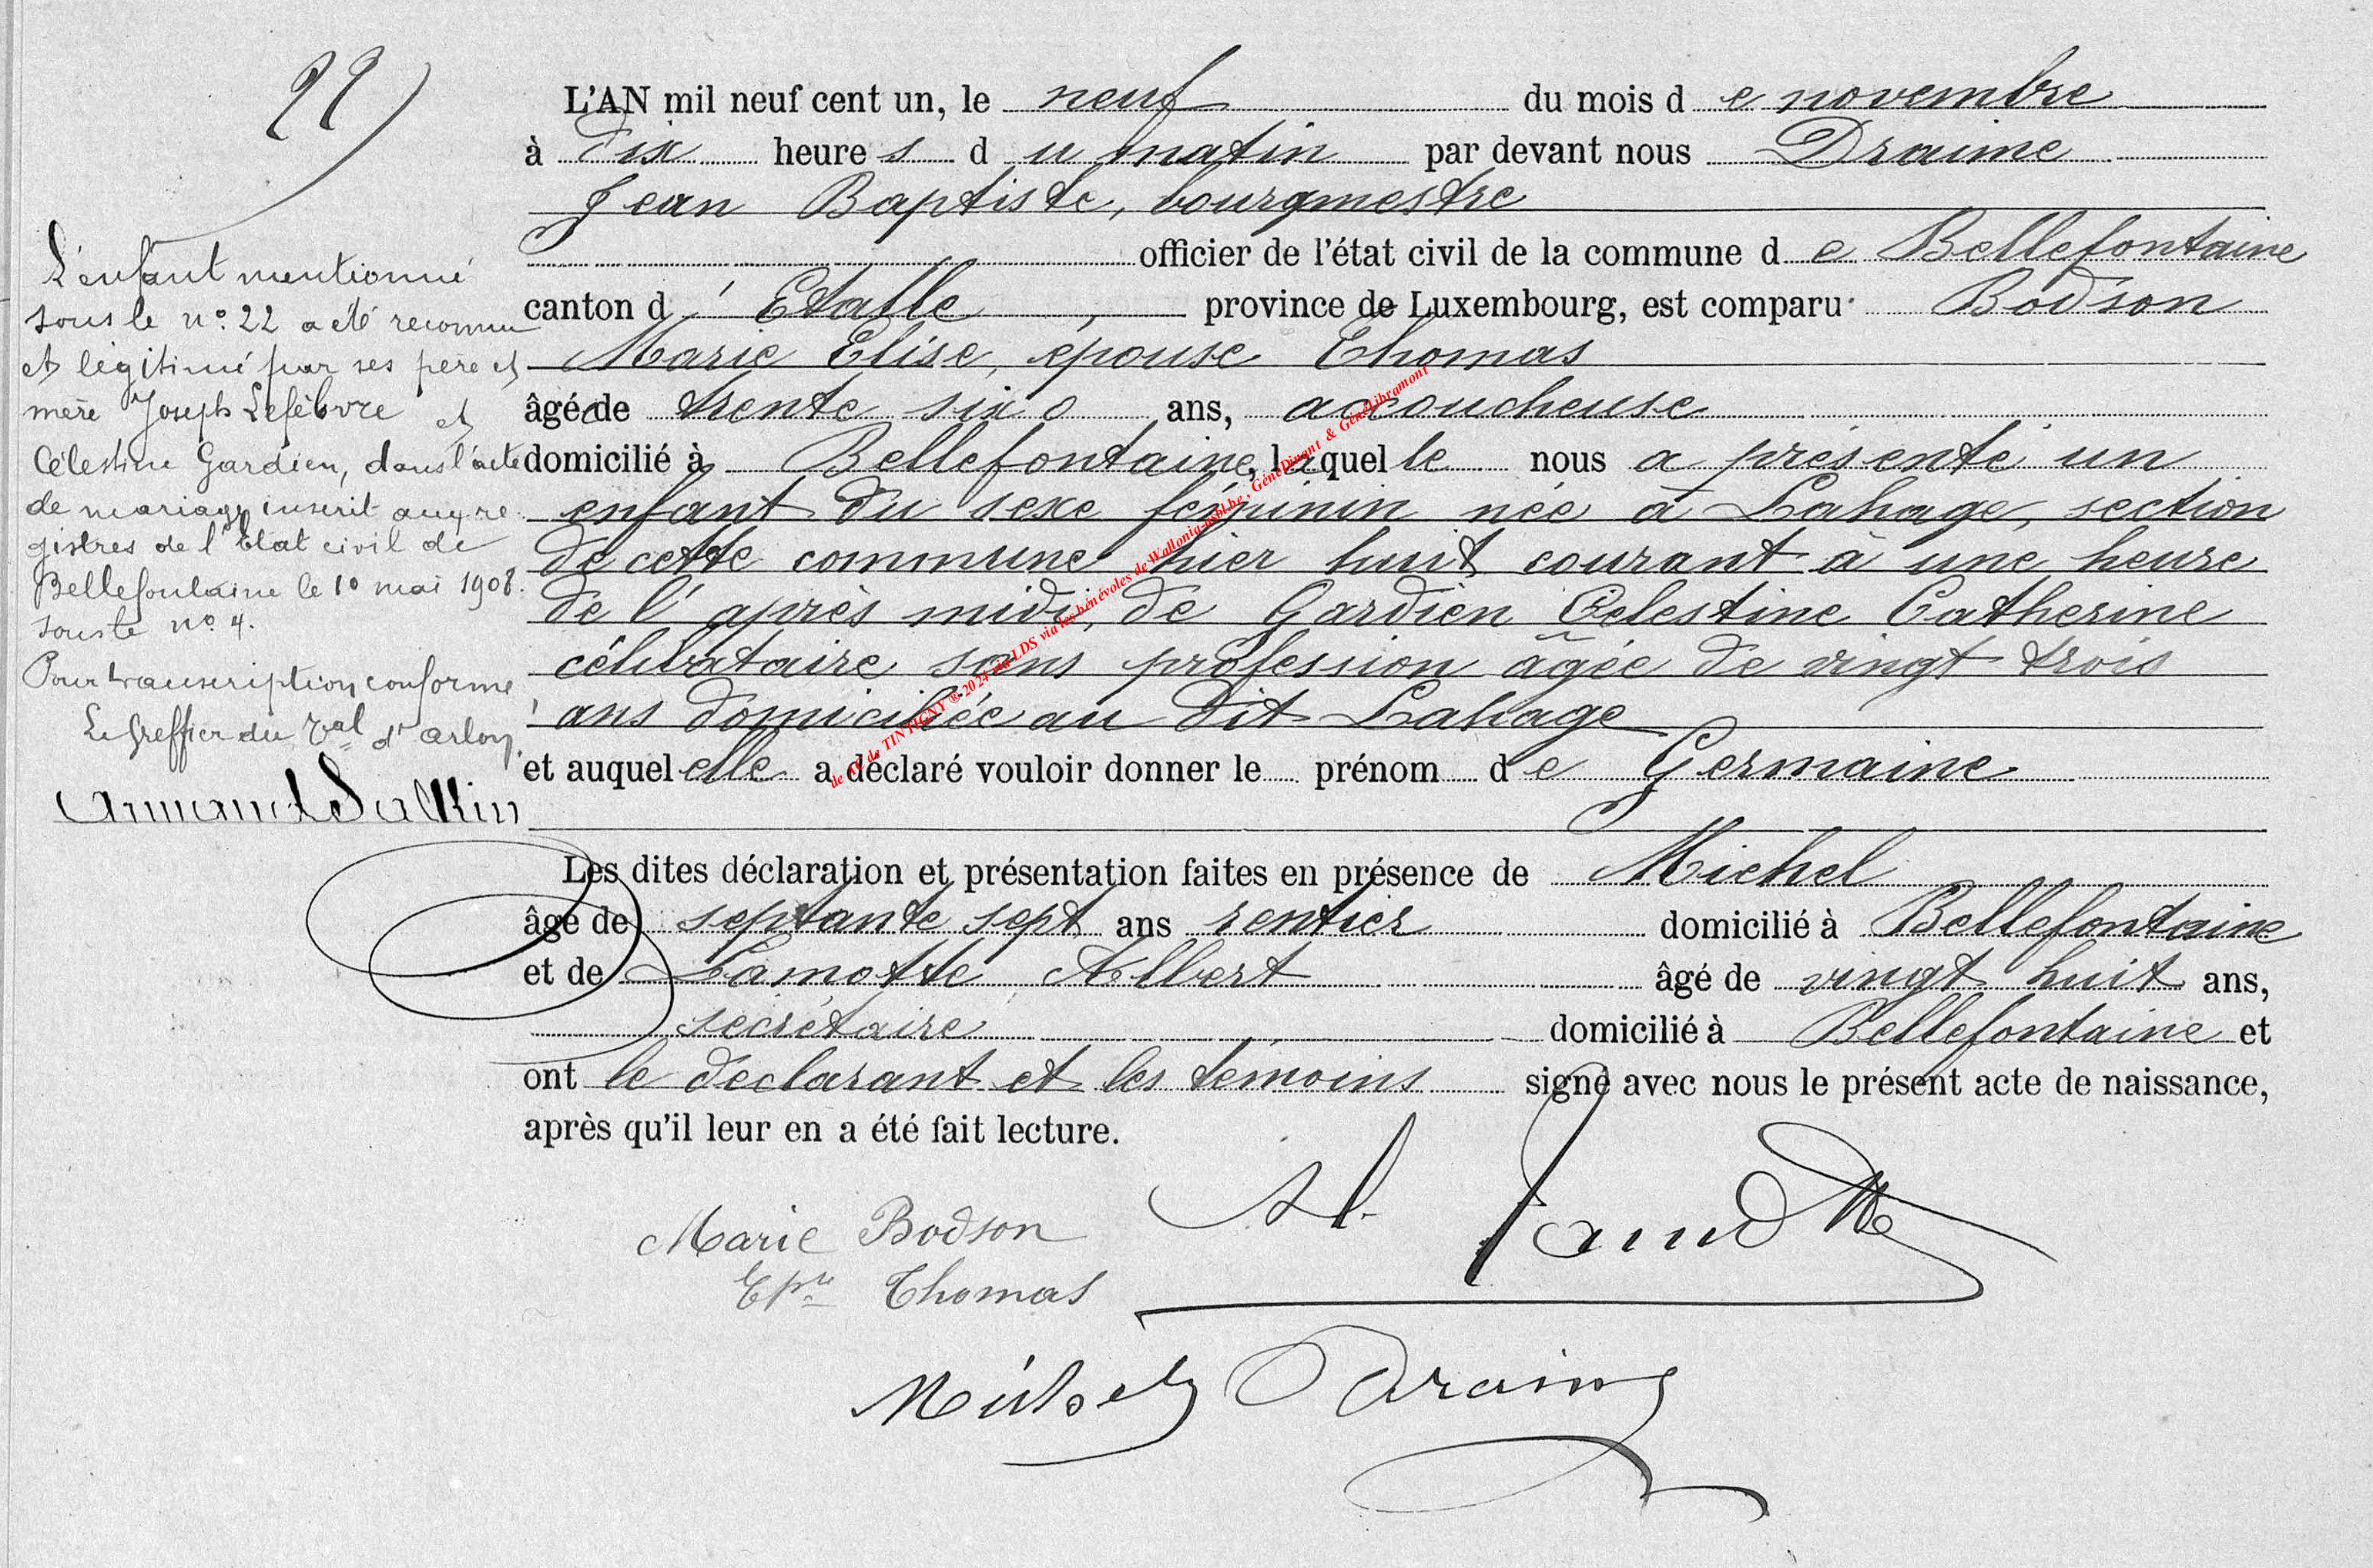 22
L'enfant mentionné
sous le n° 22 a été reconnu
et légitimé par ses père et
mère Joseph Lefèbvre et
Célestine Gardien, dans l'acte
de mariage inscrit aux re-
gistres de l'Etat civil de
Bellefontaine le 10 mai 1908.
sous le n° 4.
Pour transcription conforme
Le Greffier du Tal d'Arlon,
Armand Salkin
L'AN mil neuf cent un, le neuf du mois de novembre
à dix heures du matin par devant nous Draime
Jean Baptiste, bourgmestre
officier de l'état civil de la commune de Bellefontaine
canton d'Etalle, province de Luxembourg, est comparu Bodson
Marie Elise, épouse Thomas
âgée de trente six ans, accoucheuse
domicilié à Bellefontaine, laquelle nous a présenté un
enfant du sexe féminin née à Lahage, section
de cette commune hier huit courant à une heure
de l'après midi, de Gardien Célestine Catherine
célibataire sans profession âgée de vingt trois
ans domiciliée au dit Lahage
et auquel elle a déclaré vouloir donner le prénom de Germaine
Les dites déclaration et présentation faites en présence de Michel
âgé de septante sept ans rentier domicilié à Bellefontaine
et de Lamotte Albert âgé de vingt huit ans,
secrétaire domicilié à Bellefontaine et
ont le déclarant et les témoins signé avec nous le présent acte de naissance,
après qu'il leur en a été fait lecture.
Marie Bodson
Epse Thomas
Al. Lamotte
Michel
Draime
de AC de TINTIGNY ® 2024 via LDS via les bénévoles de Wallonia-asbl.be, GénéDinant & GénéLibramont